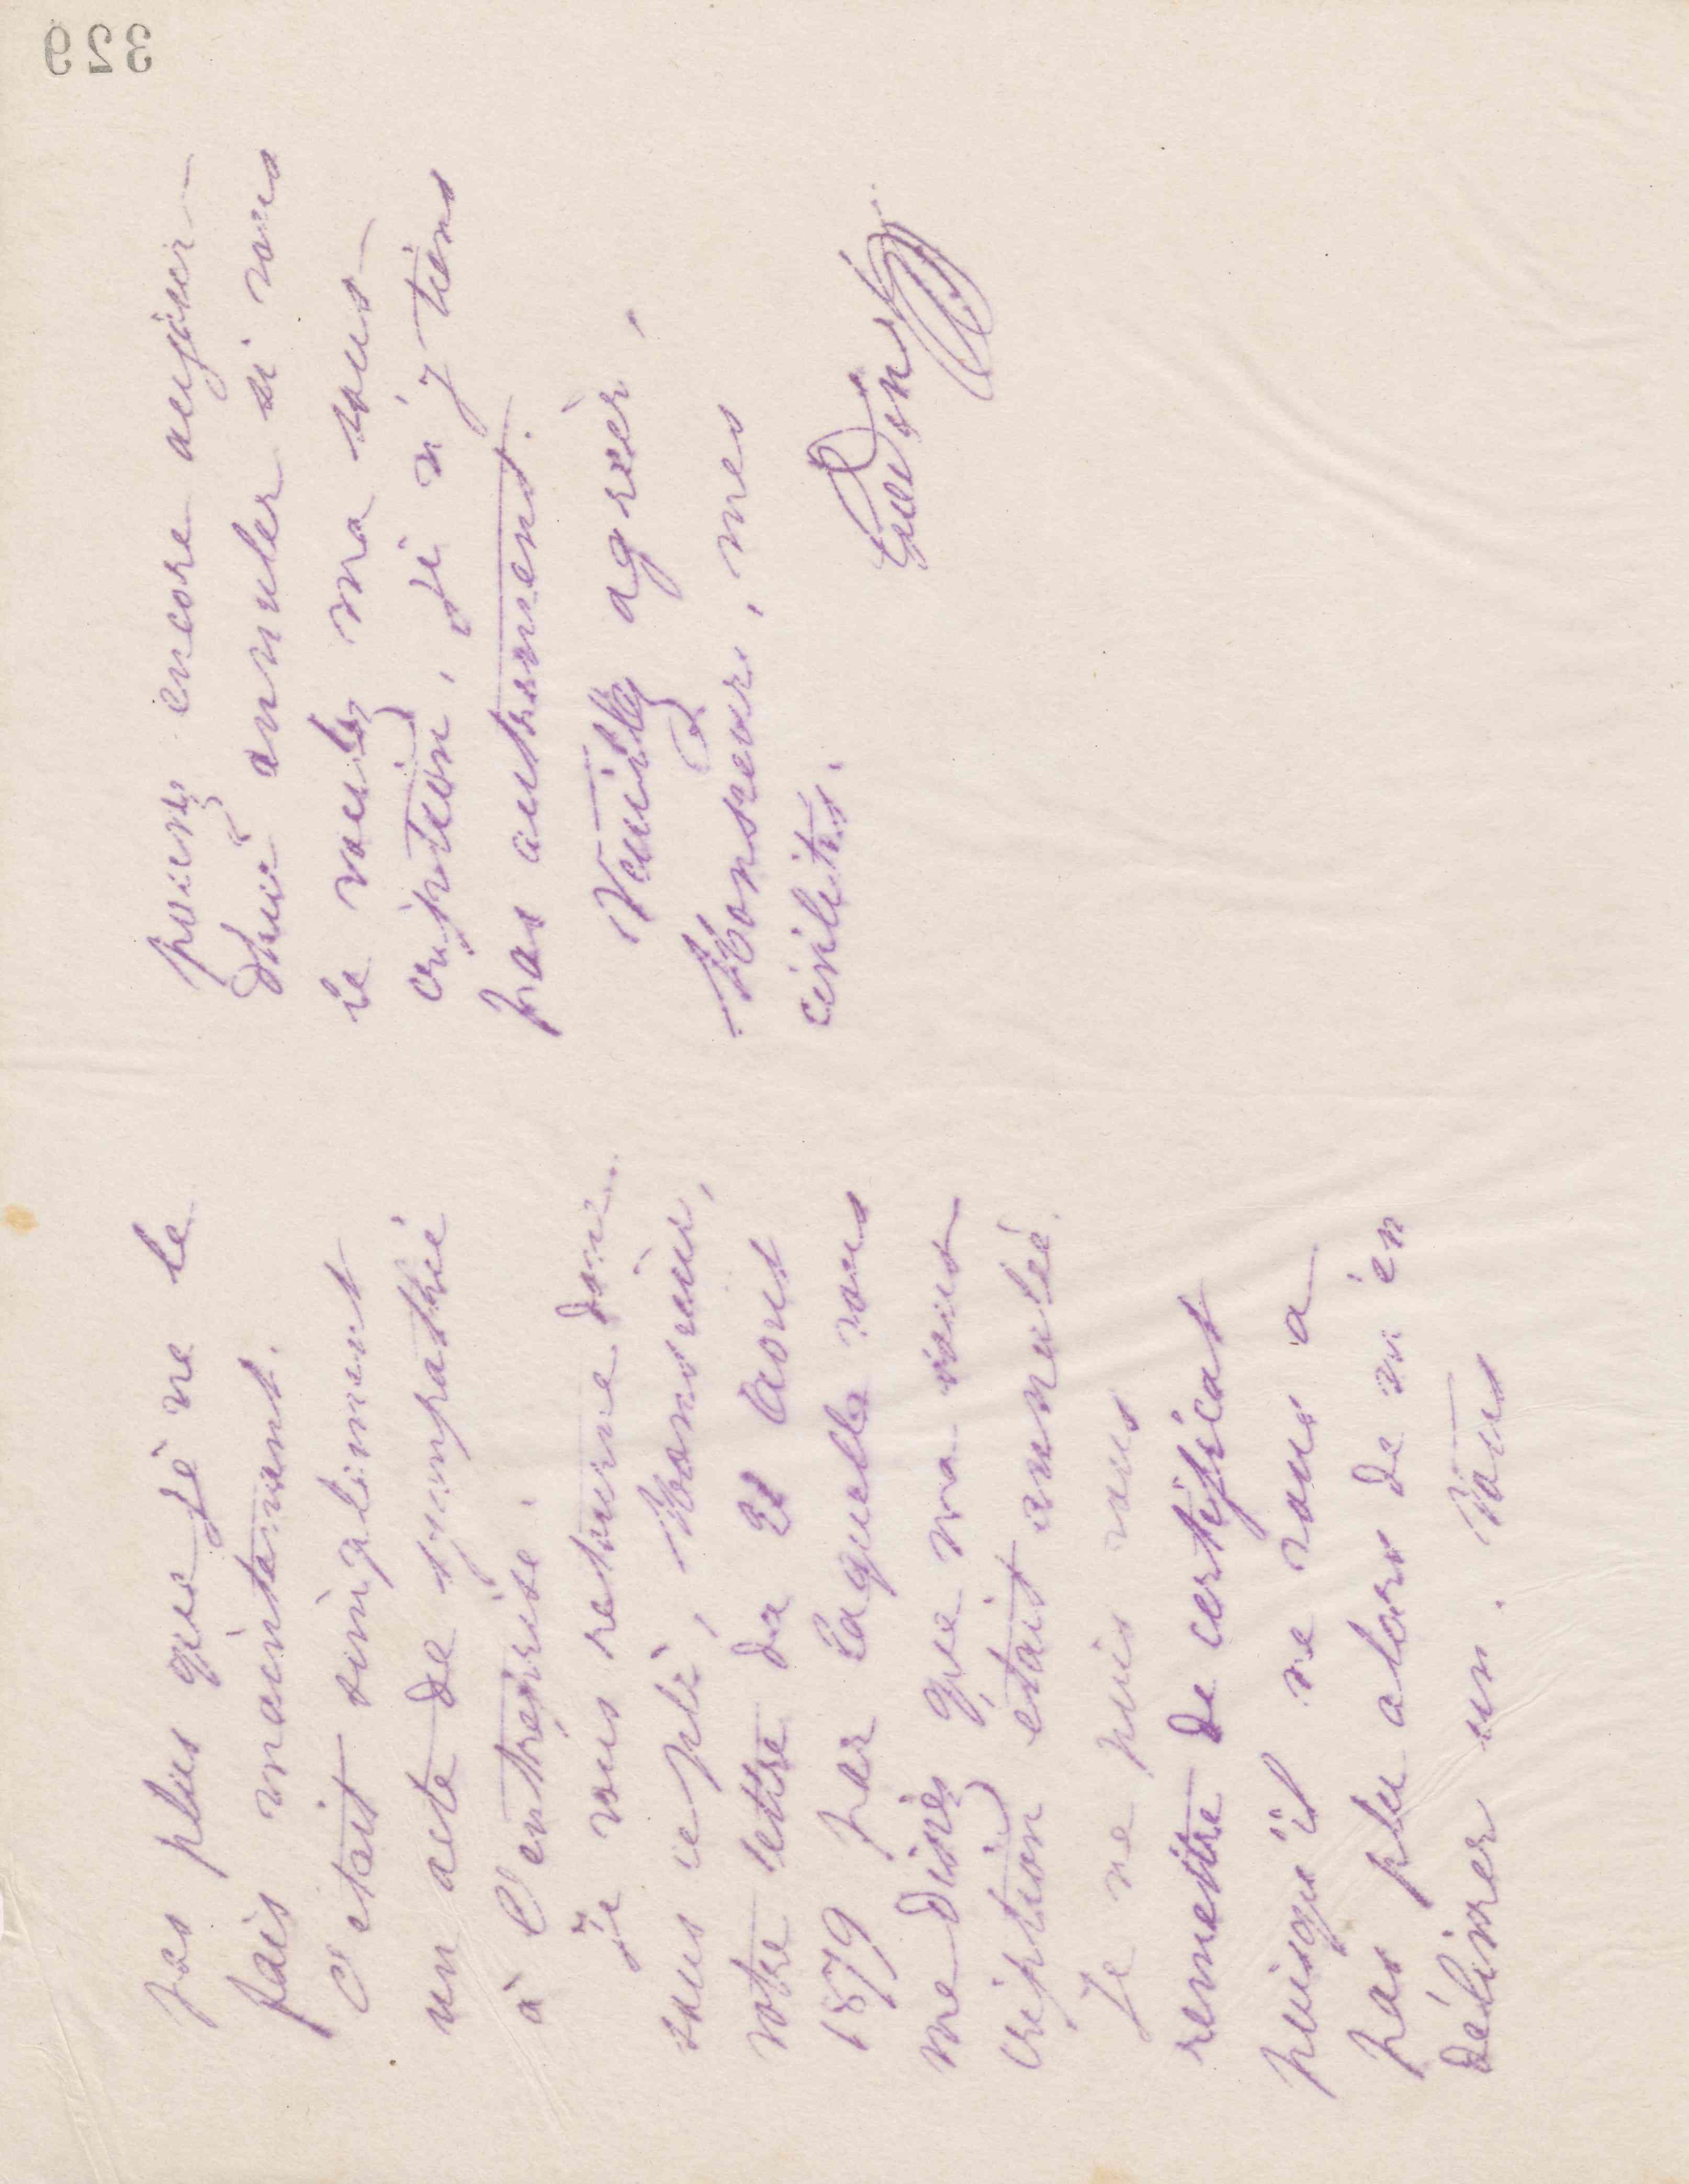 pas plus que je ne le
fais maintenant.
C'etait simplement
un acte de sympathie
à l'entreprise.
Je vous retourne donc
sous ce pli, Monsieur,
votre lettre du 21 Aout
1879 par laquelle vous
me disiez que ma sous-
cription etait annulée.
Je ne puis vous
remettre de certificat
puisqu'il ne vous a
pas plu alors de m'en
délivrer un. Vous
pouvez encore aujour-
d'hui annuler si vous
le voulez ma sous-
cription, je n'y tiens
pas autrement.
Veuillez agréer,
Monsieur, mes
civilités.
329